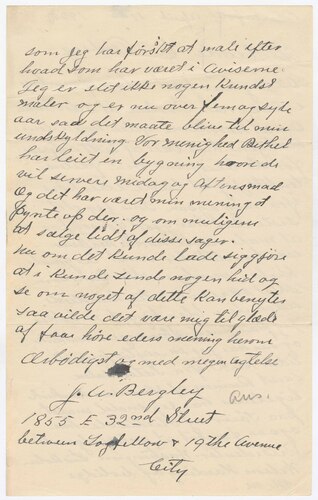 som jeg har försökt at male efter
hvad som har været i Aviserne.
Jeg er slet ikke nogen Kunst
maler og er nu over
aar saa det maatte blive til min
undskyldning. Vor menighed Bethel
har leiet en bygning hvor de
vil servere midag og Aftensmad
Og det har været min mening at
pynte op der. og om muligens
at sælge lidt af disse sager.
Nu om det kunde lade sig gjøre
at i kunde sende nogen hid og
se om noget af dette kan benyttes
saa vilde det være mig til glæde
af faa høre eders mening herom
Ærbödigst og med megen agtelse
J. A. Bergley
ans.
1855 E 32nd Street
between Longfellow & 19th Avenue
City